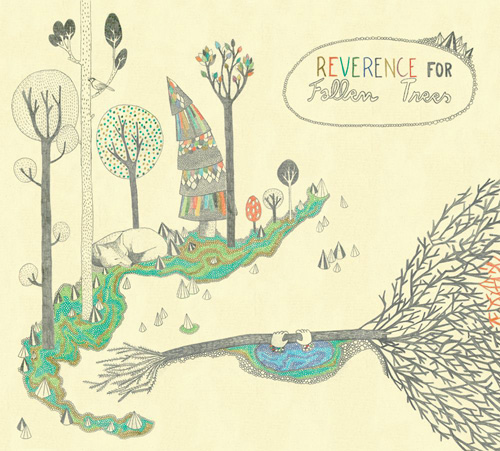 REVERENCE FOR
Fallen Trees